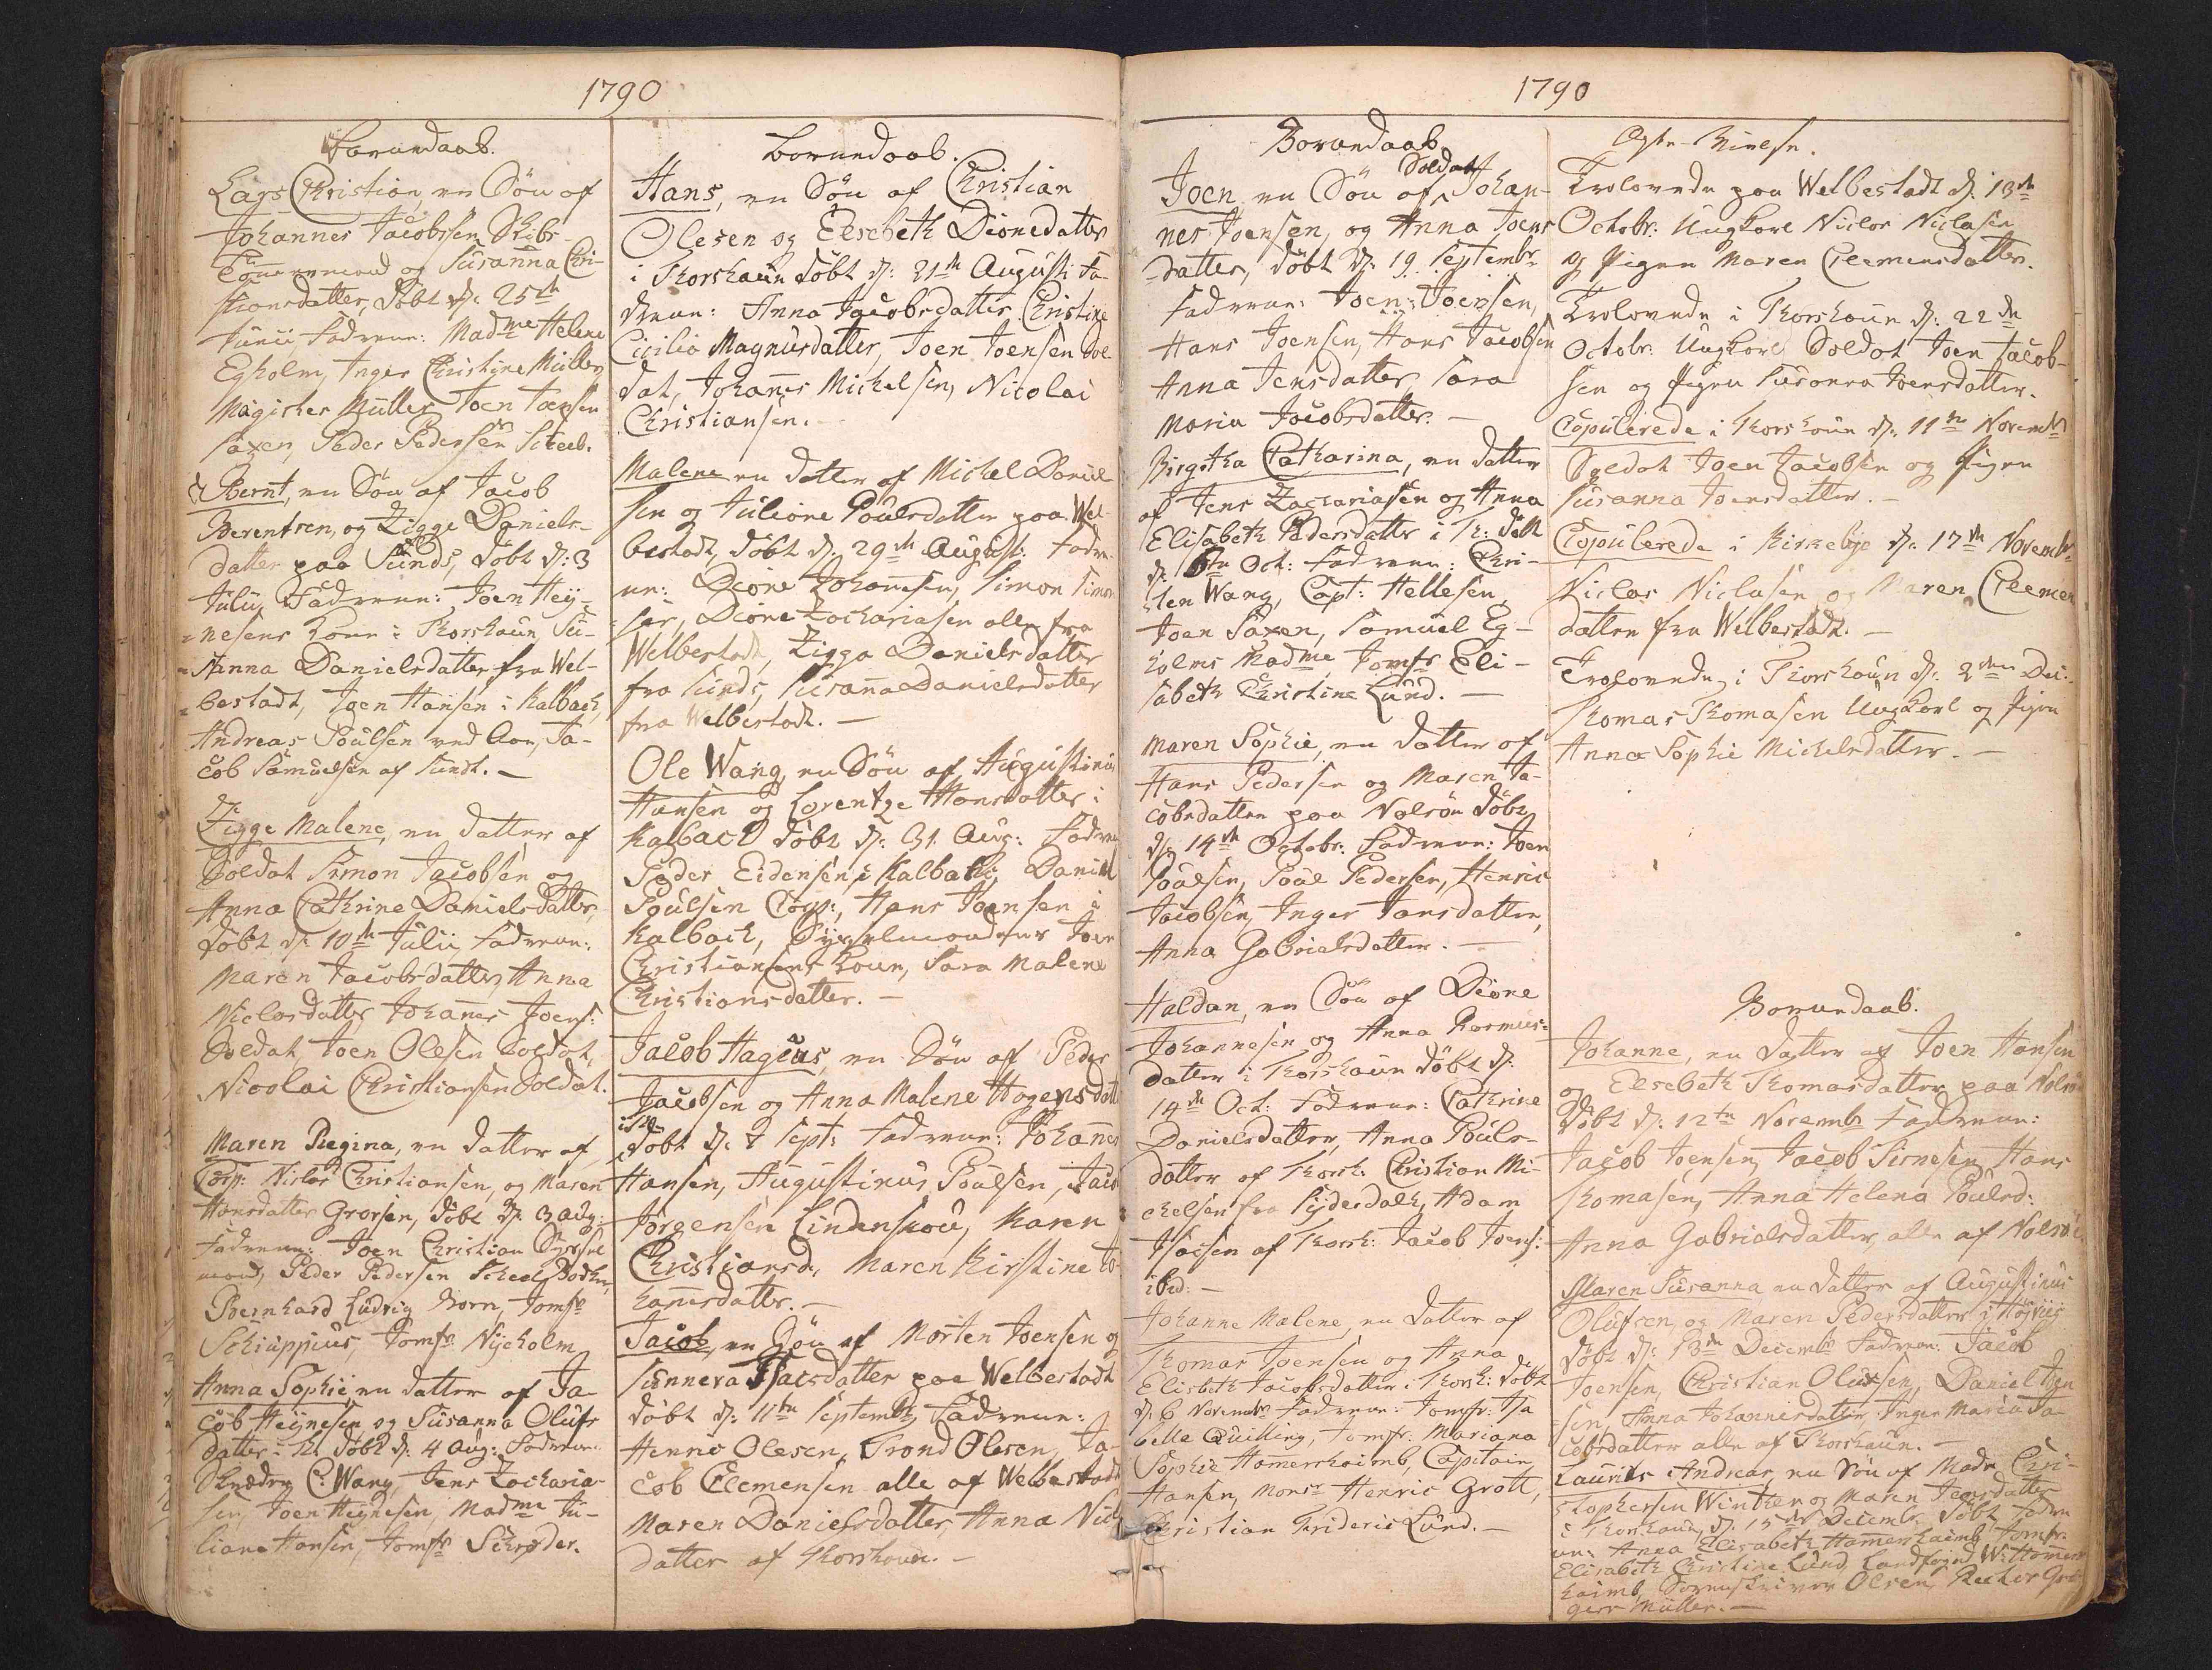 1790
Børnedaab.
Lars Christian, en Søn af
Johannes Jacobsen Skibs-
Tömmermand og Susanna Chri-
stiansdatter, døbt d. 25de
Junii, Faddrene: Madme Helene
Egholm, Inger Christine Müller,
Magister Müller, Joen Joensen
Saxen, Peder Pedersen Scheel.
Bernt, en Søn af Jacob
Berentsen, og Zigge Daniels-
datter paa Sünds, døbt d: 3
Julii, Faddrene: Joen Hey-
nesens Kone i Thorshaun, Su-
sanna Danielsdatter fra Wel-
bestadt, Joen Hansen i Kalbach,
Andreas Poulsen ved Aae, Ja-
cob Samuelsen af Sundt. —
Zigge Malene, en datter af
Soldat Simon Jacobsen og
Anna Cathrine Danielsdatter,
døbt d: 10de Julii Faddrene:
Maren Jacobsdatter, Anna
Niclasdatter, Johannes Joens:
Soldat, Joen Olesen Soldat,
Nicolai Christiansen Soldat.
Maren Regina, en datter af
Corp: Niclas Christiansen, og Maren
Hansdatter Grorsen, døbt d: 3 Aug:
Faddrene: Joen Christian Syssel
mand, Peder Pedersen Scheel Bodker,
Bernhard Ludvig Born, Jomfr
Schiappius, Jomfr Nycholm
Anna Sophie en datter af Ja-
cob Heynesen og Susanna Olufs
datter i Th. døbt d: 4 Aug: Faddrene:
C: Wang, Jens Zacharia-
sen, Joen Heynesen, Madme Ju-
liane Hansen, Jomfr Schrøder.
Børnedaab.
Hans, en Søn af Christian
Olesen og Elsebeth Dionedatter
i Thorshaun døbt d: 21de Augusti Fa-
drene: Anna Jacobsdatter, Christine
Cicilia Magnusdatter, Joen Joensen Sol-
dat, Johannes Michelsen, Nicolai
Christiansen. —
Malene en datter af Michel Daniel-
sen og Juliane Poulsdatter paa Wel-
bestadt, døbt d: 29de August: Fadre-
ne: Dione Johannesen, Simon Simon-
sen, Dione Zachariasen alle fra
Welbestadt, Zigga Danielsdatter
fra Sunds, Susanna Danielsdatter
fra Welbestadt. —
Ole Wang, en Søn af Augustinus
Hansen og Lorentze Hansdatter i
Kalbach døbt d: 31 Aug: Fadrene
Peder Eidensen i Kalbach, Daniel
Poulsen Corp:, Hans Joensen i
Kalbach, Sysselmandens Joen
Christiansens Kone, Sara Malene
Christiansdatter. —
Jacob Hagius, en Søn af Peder
Jacobsen og Anna Malene Hagensdatt
døbt d: 8 Sept: Faddrene: Johannes
Hansen, Augustinus Poulsen, Jacob
Jørgensen Lindenskou, Maren
Christiansd, Maren Kirstine Jo-
hannesdatter. —
Jacob, en Søn af Morten Joensen og
Sunneva Isacsdatter paa Welbestadt
døbt d: 11te Septembr, Faddrene:
Hennic Olesen, Trond Olesen, Ja-
cob Clemensen alle af Welbestadt
Maren Danielsdatter, Anna Nicls
datter af Thorshaun. —
1790
Børnedaab
Soldat
Joen en Søn af Johan-
nes Joensen, og Anna Joens
datter, døbt d: 19 Septembr
Fadrene: Joen Joensen,
Hans Joensen, Hans Jacobsen
Anna Jensdatter, Sara
Maria Jacobsdatter. —
Birgitha Catharina, en datter
af Jens Zachariasen og Anna
Elisabeth Pedersdatter i Th: døbt
d: 6te Oct: Fadrene: Chri-
sten Wang, Capt: Hellesen,
Joen Saxen, Samuel Eg-
holms Madme Jomfr Eli-
sabeth Christine Lund. —
Maren Sophie, en datter af
Hans Pedersen og Maren Ja-
cobsdatter paa Nolsöe døbt
d: 14de Octobr: Fadrene: Joen
Poulsen, Poul Pedersen, Henric
Jacobsen, Inger Jansdatter,
Anna Gabrielsdatter. —
Haldan, en Søn af Dione
Johannesen og Anna Rasmus-
datter i Thorshaun døbt d:
14de Oct: Fadrene: Cathrine
Danielsdatter, Anna Pouls-
datter af Thorsh: Christian Mi-
chelsen fra Syderdahl, Adam
Isacsen af Thorsh: Jacob Joens:
ibid: —
Johanne Malene, en datter af
Thomas Joensen og Anna
Elisbeth Jacobsdatter i Thorsh: døbt
d: 6 Novembr Fadrene: Jomfr: Isa
belle Quilling, Jomfr: Mariana
Sophie Hamershaimb, Capitain
Hansen, Monsr Henric Grott,
Christian Frideric Lund. —
Ægte-Vielse.
Trolovede paa Welbestadt d: 13de
Octobr: Ungkarl Niclas Niclasen
og Pigen Maren Cleemensdatter.
Trolovede i Thorshaun d: 22de
Octobr: Ungkarl Soldat Joen Jacob-
sen og Pigen Susanna Joensdatter.
Copulerede i Thorshaun d: 11te Novembr
Soldat Joen Jacobsen og Pigen
Susanna Joensdatter. —
Copulerede i Kirkebye d: 17de Novembr
Niclas Niclasen og Maren Cleemen
datter fra Welbestadt. —
Trolovede i Thorshaun d: 2den Dec:
Thomas Thomasen Ungkarl og Pigen
Anna Sophie Michelsdatter. —
Børnedaab.
Johanne, en datter af Joen Hansen
og Elsebeth Thomasdatter paa Nolsöe
døbt d: 12te Novembr Fadrene:
Jacob Joensen, Jacob Simesen, Hans
Thomasen, Anna Helena Poulsd:
Anna Gabrielsdatter, alle af Nolsöe
Maren Susanna en datter af Augustinus
Olufsen, og Maren Pedersdatter i Høyviig
døbt d: 13de Decembr Fadrene: Jacob
Joensen, Christian Olufsen, Daniel Joen
sen, Anna Johannesdatter, Inger Maria Ja-
cobsdatter alle af Thorshaun. —
Laurits Andreas, en Søn af Madr Chri-
stophersen Winther og Maren Joensdatter
i Thorshaun, d: 15de Decembr døbt Fadre
ne: Anna Elisabeth Hammershaimb, Jomfr:
Elisabeth Christine Lund, Landfoged W: Hammers
haimb, Sorenskriver Olsen,
Müller. —